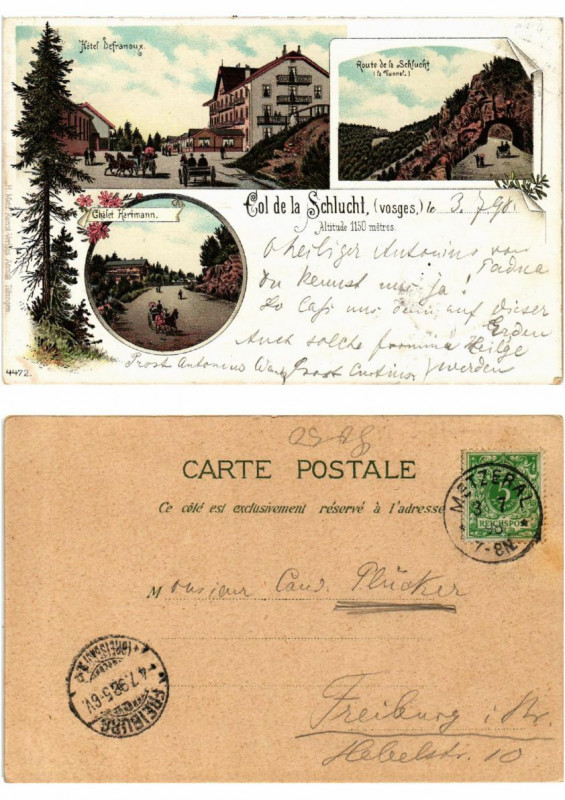 Hôtel Defranoux.
Route de la Schlucht
(le Tunnel.)
Châlet Hartmann.
Col de la Schlucht, (vosges,) le 3. 7. 98.
Altitude 1150 mètres.
O heiliger Antonius von
Padua
Du kennst mich ja!
So laß uns dann auf dieser
Erden
Auch solche fromme Heilge
werden
Prost Antonino
Prost
4472.
CARTE POSTALE
Ce côté est exclusivement réservé à l'adresse
METZERAL
3 7
98
7-8N.
5
REICHSPOST
Monsieur Cand. Plücker
FREIBURG
(BREISGAU)
4.7.98.5-6V.
Freiburg i. Br.
Hebelstr. 10